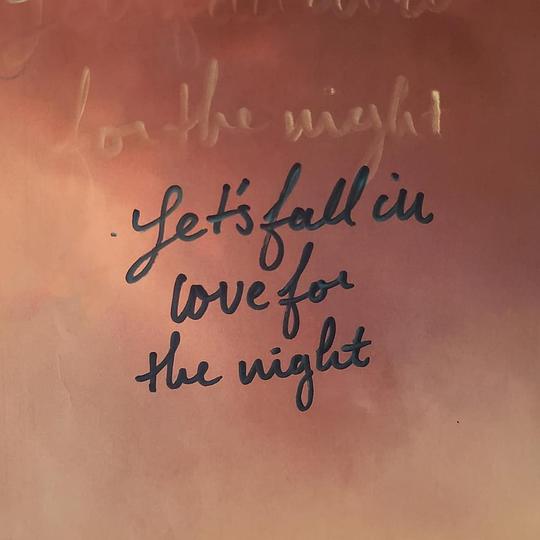 for the night
Let's fall in
love for
the night